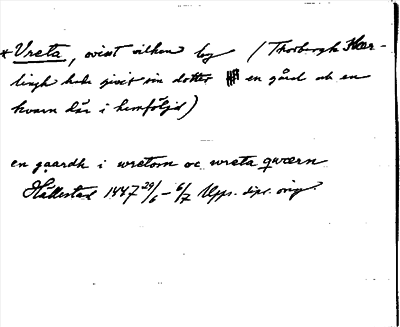 * Vreta, ovisst vilken by (Thorbergh Kær-
lingh hade givit sin dotter en gård och en
kvarn där i hemföljd)
en gaardh i wretom oc wreta qwærn
Hällestad 1447 29/6 – 6/7 Upps. dipl. orig.